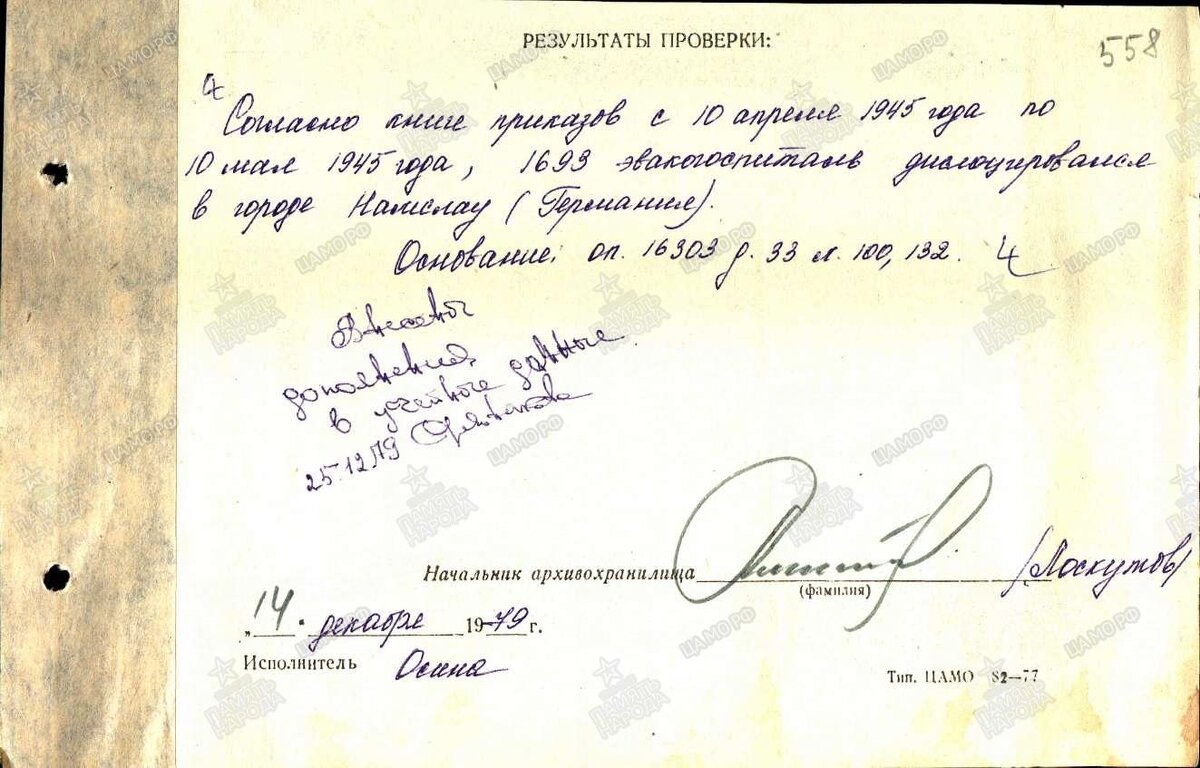 РЕЗУЛЬТАТЫ ПРОВЕРКИ:
558
Согласно книге приказов с 10 апреля 1945 года по
10 мая 1945 года, 1693 эвакогоспиталь дислоцировался
в городе Намслау (Германия).
Основание: оп. 16303 д. 33 л. 100, 132.
Внесены
дополнения
в учетные данные
25.12.79
Начальник архивохранилища (Лоскутов)
(фамилия)
„14" декабря 1979 г.
Исполнитель Осина
Тип. ЦАМО 82—77
ЦАМО РФ
ПАМЯТЬ НАРОДА